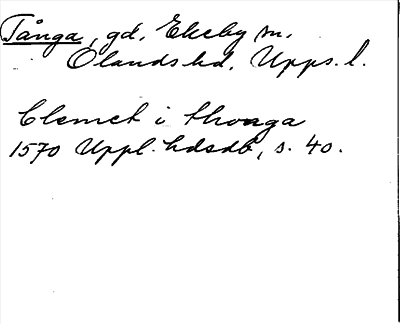 Tånga, gd, Ekeby sn.
Olands hd. Upps. l.
Clemet i thonga
1570 Uppl. hdsdb, s. 40.